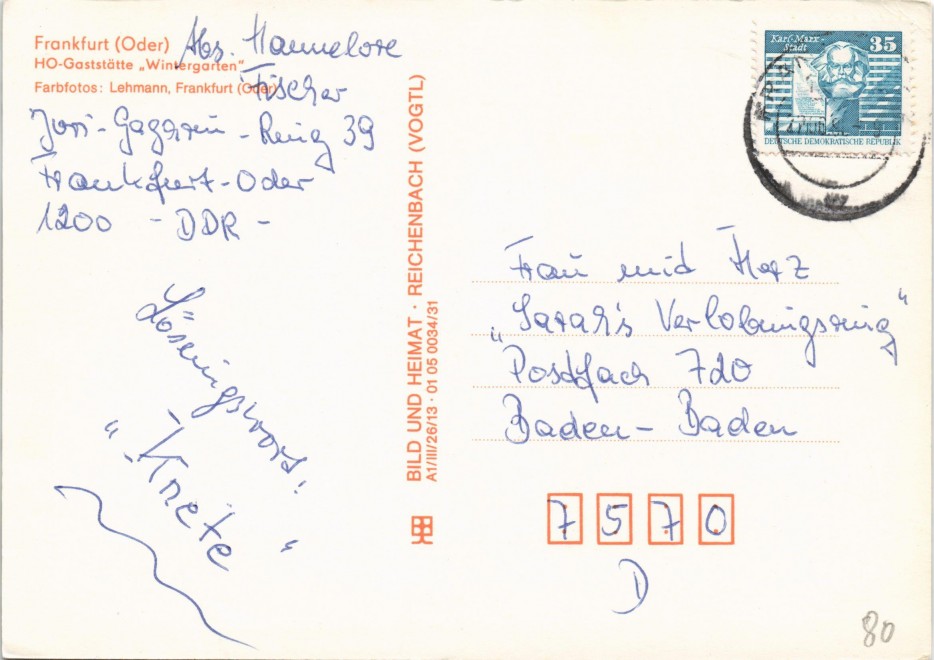 Frankfurt (Oder)
HO-Gaststätte „Wintergarten"
Farbfotos: Lehmann, Frankfurt (Oder)
Abs. Hannelore
Fischer
Juri-Gagarin-Ring 39
Frankfurt-Oder
1200 - DDR -
Lösungswort:
"Knete"
BILD UND HEIMAT · REICHENBACH (VOGTL)
A1/III/26/13 · 01 05 0034/31
Karl-Marx-
Stadt
35
DEUTSCHE DEMOKRATISCHE REPUBLIK
Frau mid Herz
„Sarah's Verlobungsring"
Postfach 720
Baden-Baden
7570
D
80